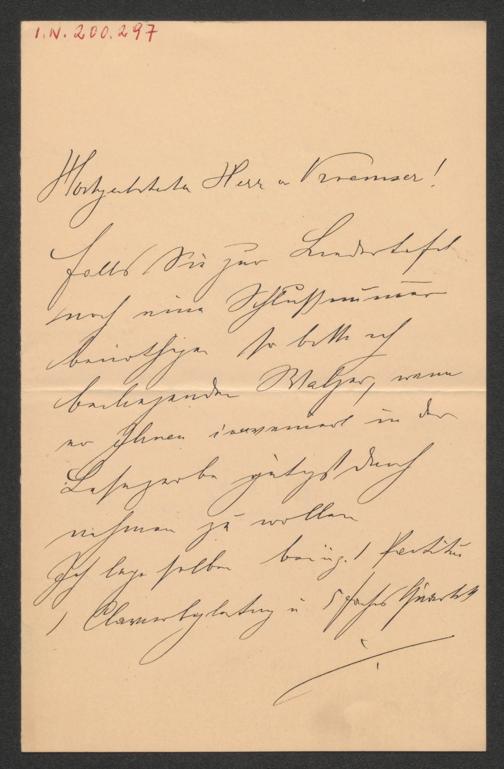 I.N. 200.297
Hochgeehrter Herr v Kremser!
Falls Sie zur Liedertafel
noch eine Schlußnummer
benöthigen so bitte ich
beiliegenden Walzer, wenn
er Ihnen conveniert in der
Leseprobe gütigst durch
nehmen zu wollen
Ich lege selben bei u. z. 1 Partitur
1 Clavierbegleitung u 5 faches Quartett